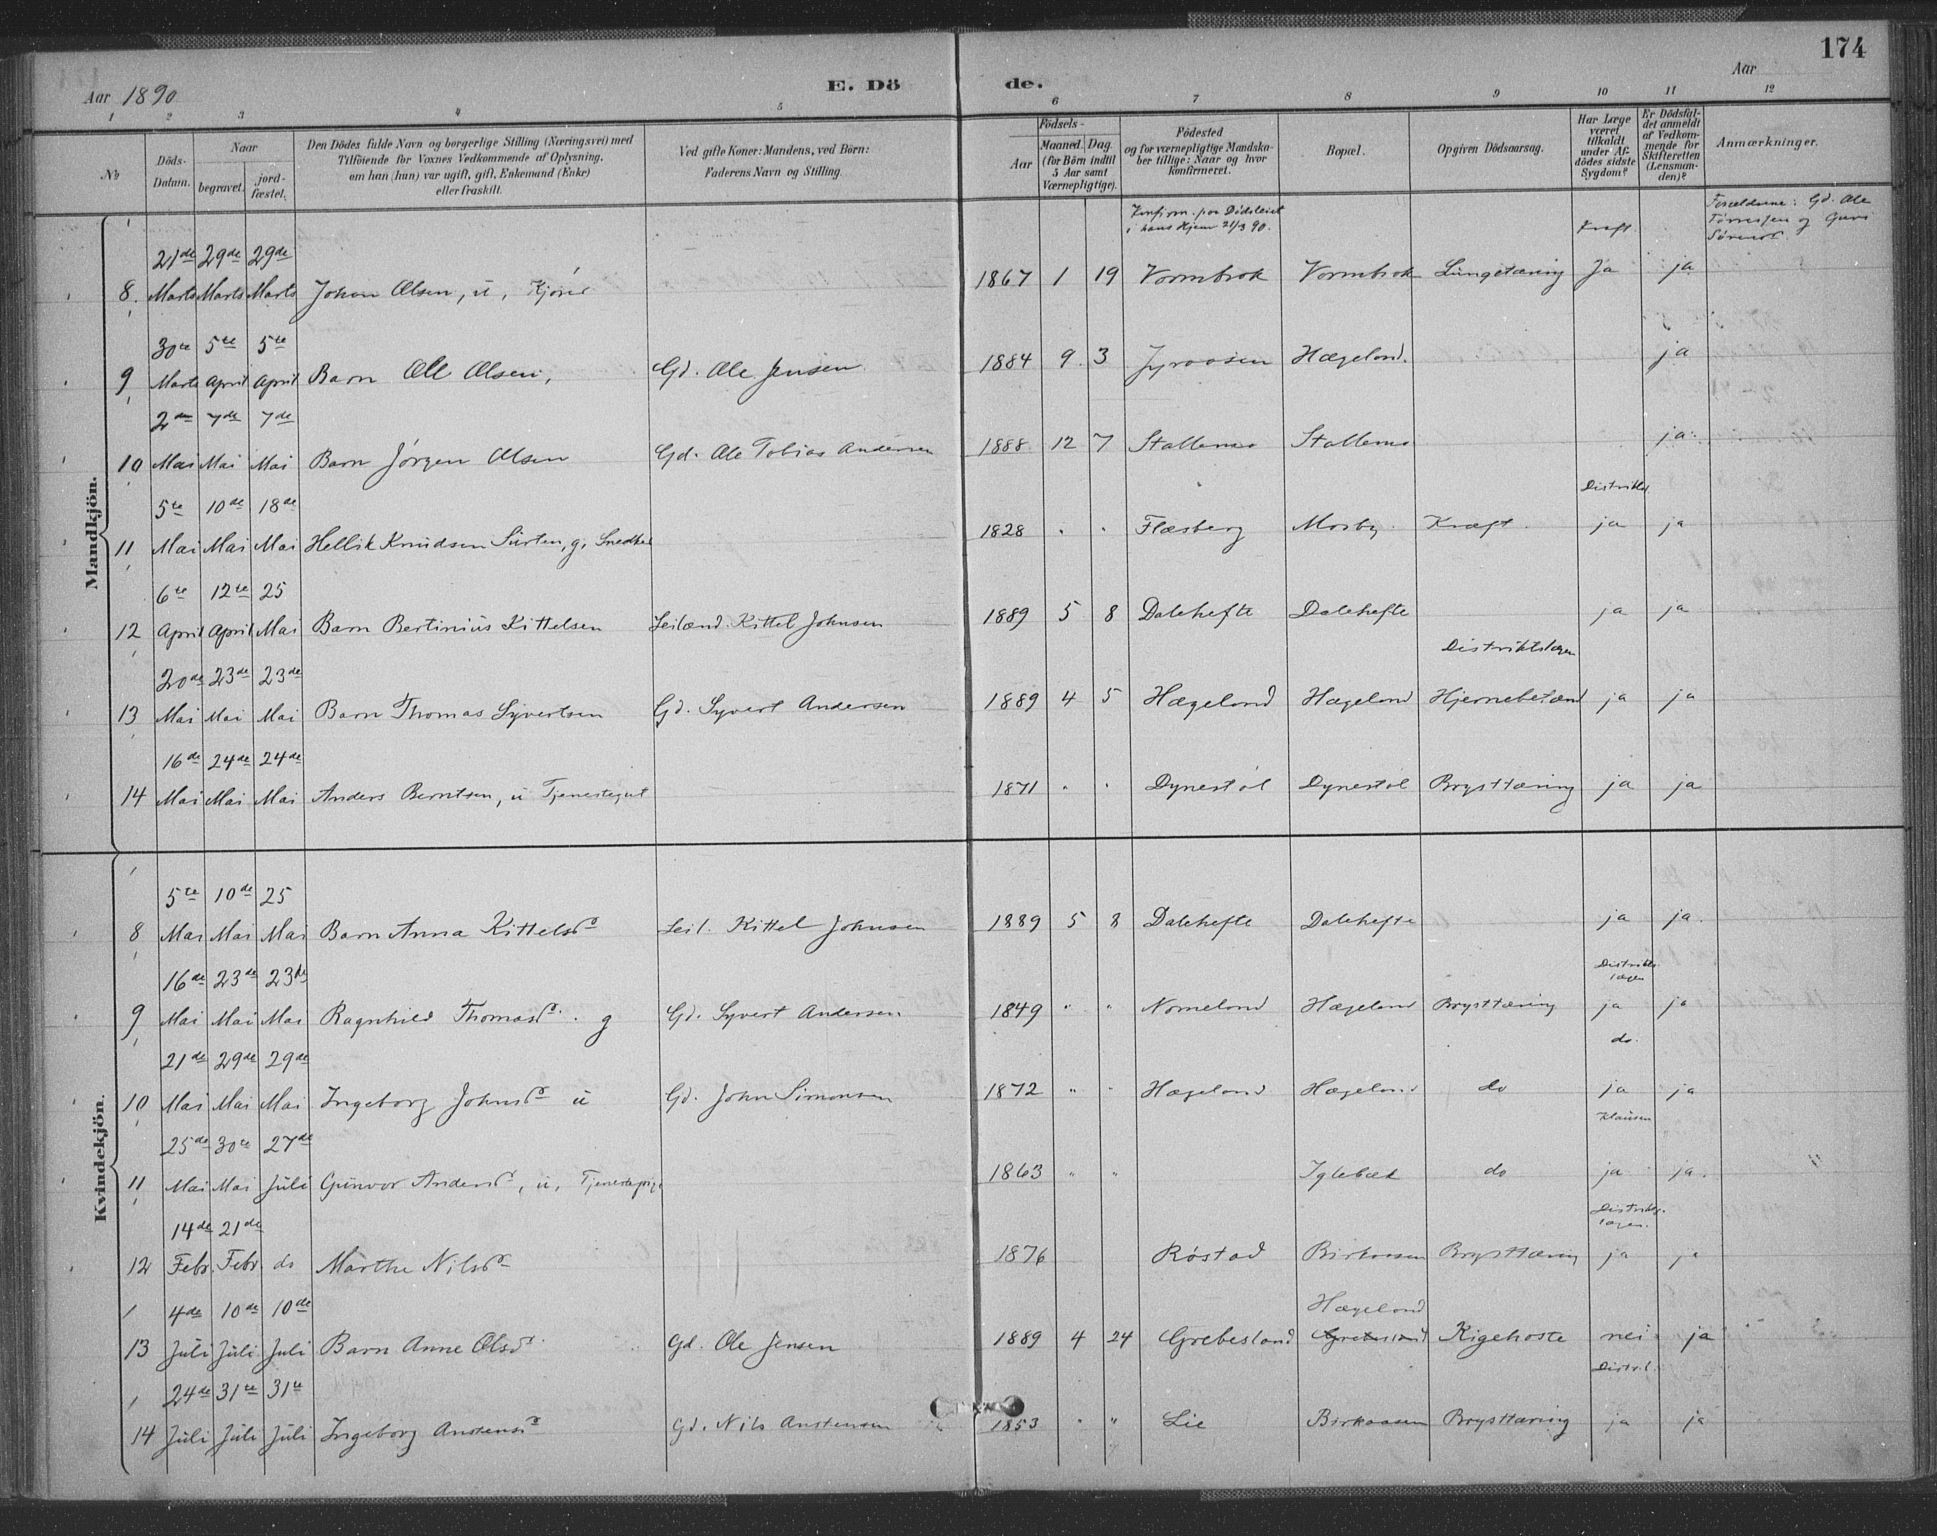 174
Aar 1890
E. Dö de.
Aar
1 2 3 4 5 6 7 8 9 10 11 12
No
Döds-Datum.
Naar
begravet.
jord-fæstet.
Den Dödes fulde Navn og borgerlige Stilling (Næringsvei) med
Tilföiende for Voxnes Vedkommende af Oplysning,
om han (hun) var ugift, gift, Enkemand (Enke)
eller fraskilt.
Ved gifte Koner: Mandens, ved Börn:
Faderens Navn og Stilling.
Födsels-
Aar
Maaned.
Dag.
(for Börn indtil 5 Aar samt Værnepligtige).
Födested
og for værnepligtige Mandska-
ber tillige: Naar og hvor
konfirmeret.
Bopæl.
Opgiven Dödsaarsag.
Har Læge været tilkaldt under Af-dödes sidste Sygdom?
Er Dödsfal-det anmeldt af Vedkom-mende for Skifteretten (Lensman-den)?
Anmærkninger.
Mandkjön.
Konfirm. paa Dødsleiet
i hans Hjem 21/3 90.
Forældrene: Gd. Ole
Tørressen og Guri
8. 21de Marts 29de Marts 29de Marts Johan Olsen, u, 1867 1 19 Vormbrok Vormbrok Lungetæring Ja ja
9 30te Marts 5te April 5te April Barn Ole Olsen, Gd. Ole Jensen 1884 9 3 Jyraasen Hægeland. ja
10 2den Mai 7de Mai 7de Mai Barn Jørgen Olsen Gd. Ole Tobias Andersen 1888 12 7 Stallemo Stallemo ja.
Distrikts
11 5te Mai 10de Mai 18de Mai Hellik Knudsen Surten, g, Snedker 1828 " " Flesberg Mosby. Kræft. ja ja
12 6te April 12te April 25 Mai Barn Bertinius Kittelsen Leilænd. Kittel Johnsen 1889 5 8 Dalehefte Dalehefte ja ja
Distriktslægen
13 20de Mai 23de Mai 23de Mai Barn Thomas Syvertsen Gd. Syvert Andersen 1889 4 5 Hægeland Hægeland Hjernebetænd ja ja
14 16de Mai 24de Mai 24de Mai Anders Berntsen, u Tjenestegut 1871 " " Dynestøl Dynestøl Brysttæring ja ja
Kvindekjön.
8 5te Mai 10de Mai 25 Mai Barn Anna Kittelsd Leil. Kittel Johnsen 1889 5 8 Dalehefte Dalehefte ja ja.
Distriktslægen
9 16de Mai 23de Mai 23de Mai Ragnhild Thomasd. g Gd. Syvert Andersen 1849 " " Nomeland Hægeland Brysttæring ja ja
do.
10 21de Mai 29de Mai 29de Mai Ingeborg Johnsd u Gd. John Simonsen 1872 " " Hægeland Hægeland do ja ja
Klausen
11 25de Mai 30te Mai 27de Juli Gunvor Andersd, u, Tjenestepige 1863 " " Iglebæk do ja ja.
Distriktslægen.
12 14de Febr. 21de Febr. do Marthe Nilsd 1876 Røstad Birkaasen Brysttæring ja ja
Hægeland
13 4de Juli 10de Juli 10de Juli Barn Anne Olsd Gd. Ole Jensen 1889 4 24 Grebesland Grebesland Kigehoste nei ja
Distr.l.
14 24de Juli 31te Juli 31te Juli Ingeborg Anstensd Gd. Nils Anstensen 1853 " " Lie Birkaasen Brysttæring ja ja